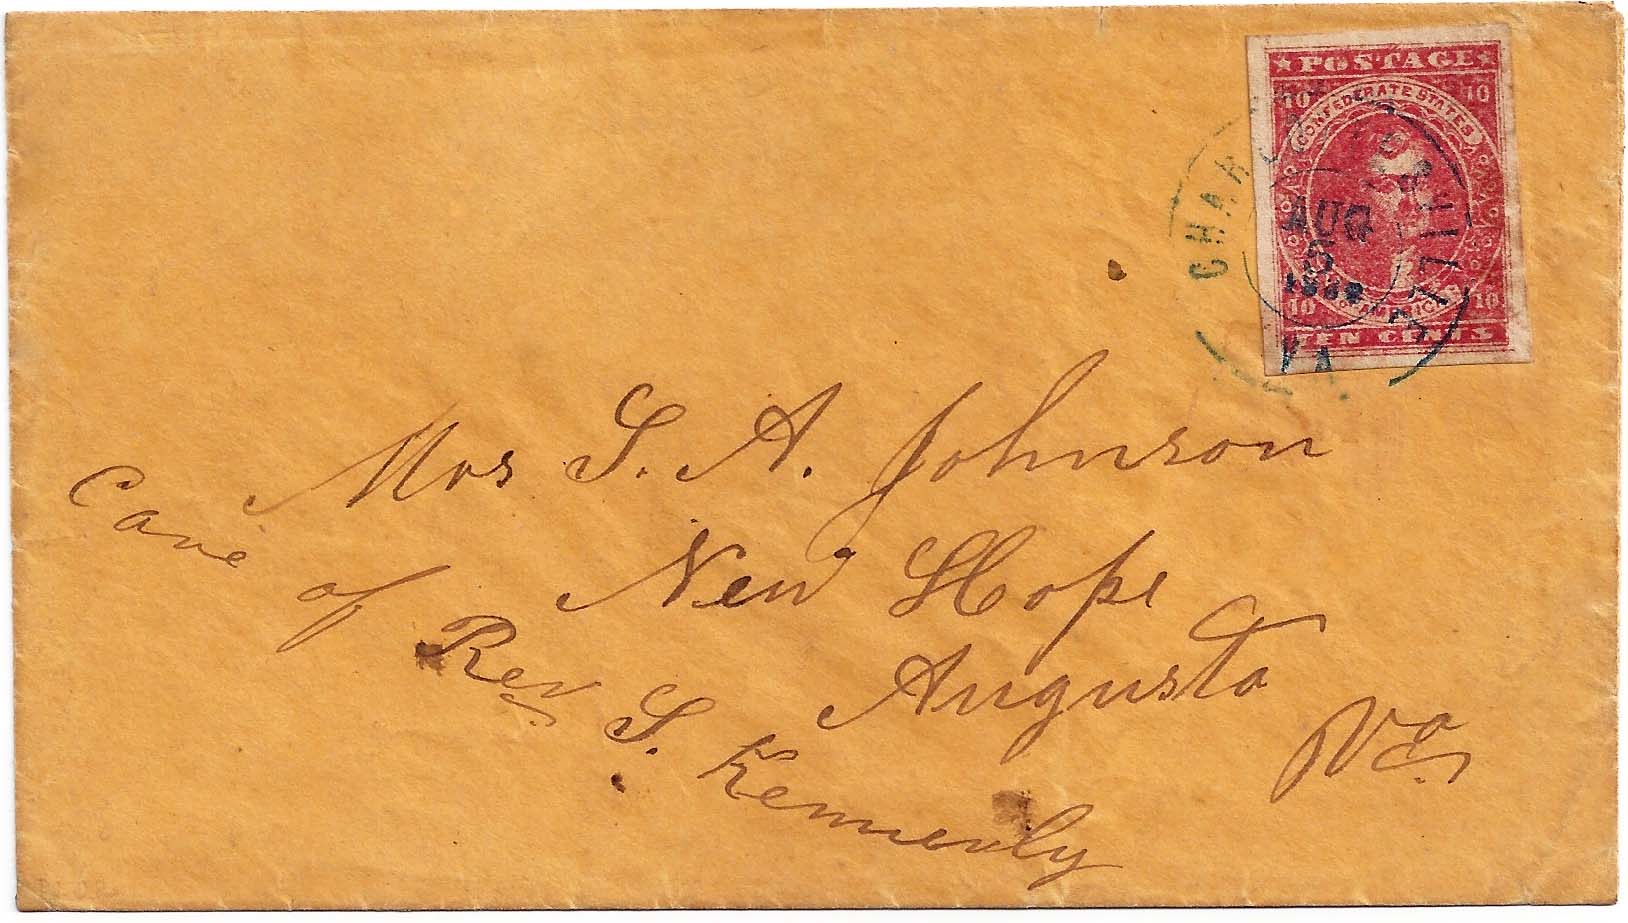 ★ POSTAGE ★
10 10
CONFEDERATE STATES
OF AMERICA
10 10
TEN CENTS
CHARLOTTESVILLE
AUG
5
VA.
Mrs S. A. Johnson
New Hope
Augusta
Va.
Care
of
Rev. S. Kennerly